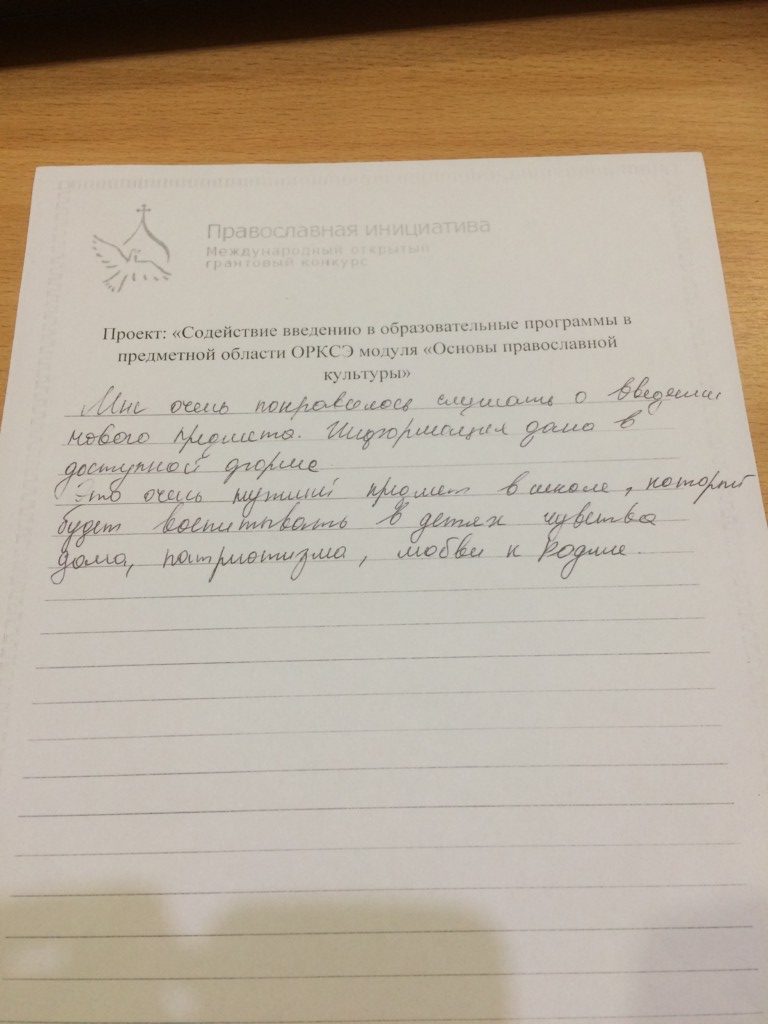 Православная инициатива
Международный открытый
грантовый конкурс
Проект: «Содействие введению в образовательные программы в
предметной области ОРКСЭ модуля «Основы православной
культуры»
Мне очень понравилось слушать о введении
нового предмета. Информация дана в
доступной форме
Это очень нужный предмет в школе, который
будет воспитывать в детях чувства
дома, патриотизма, любви к Родине.